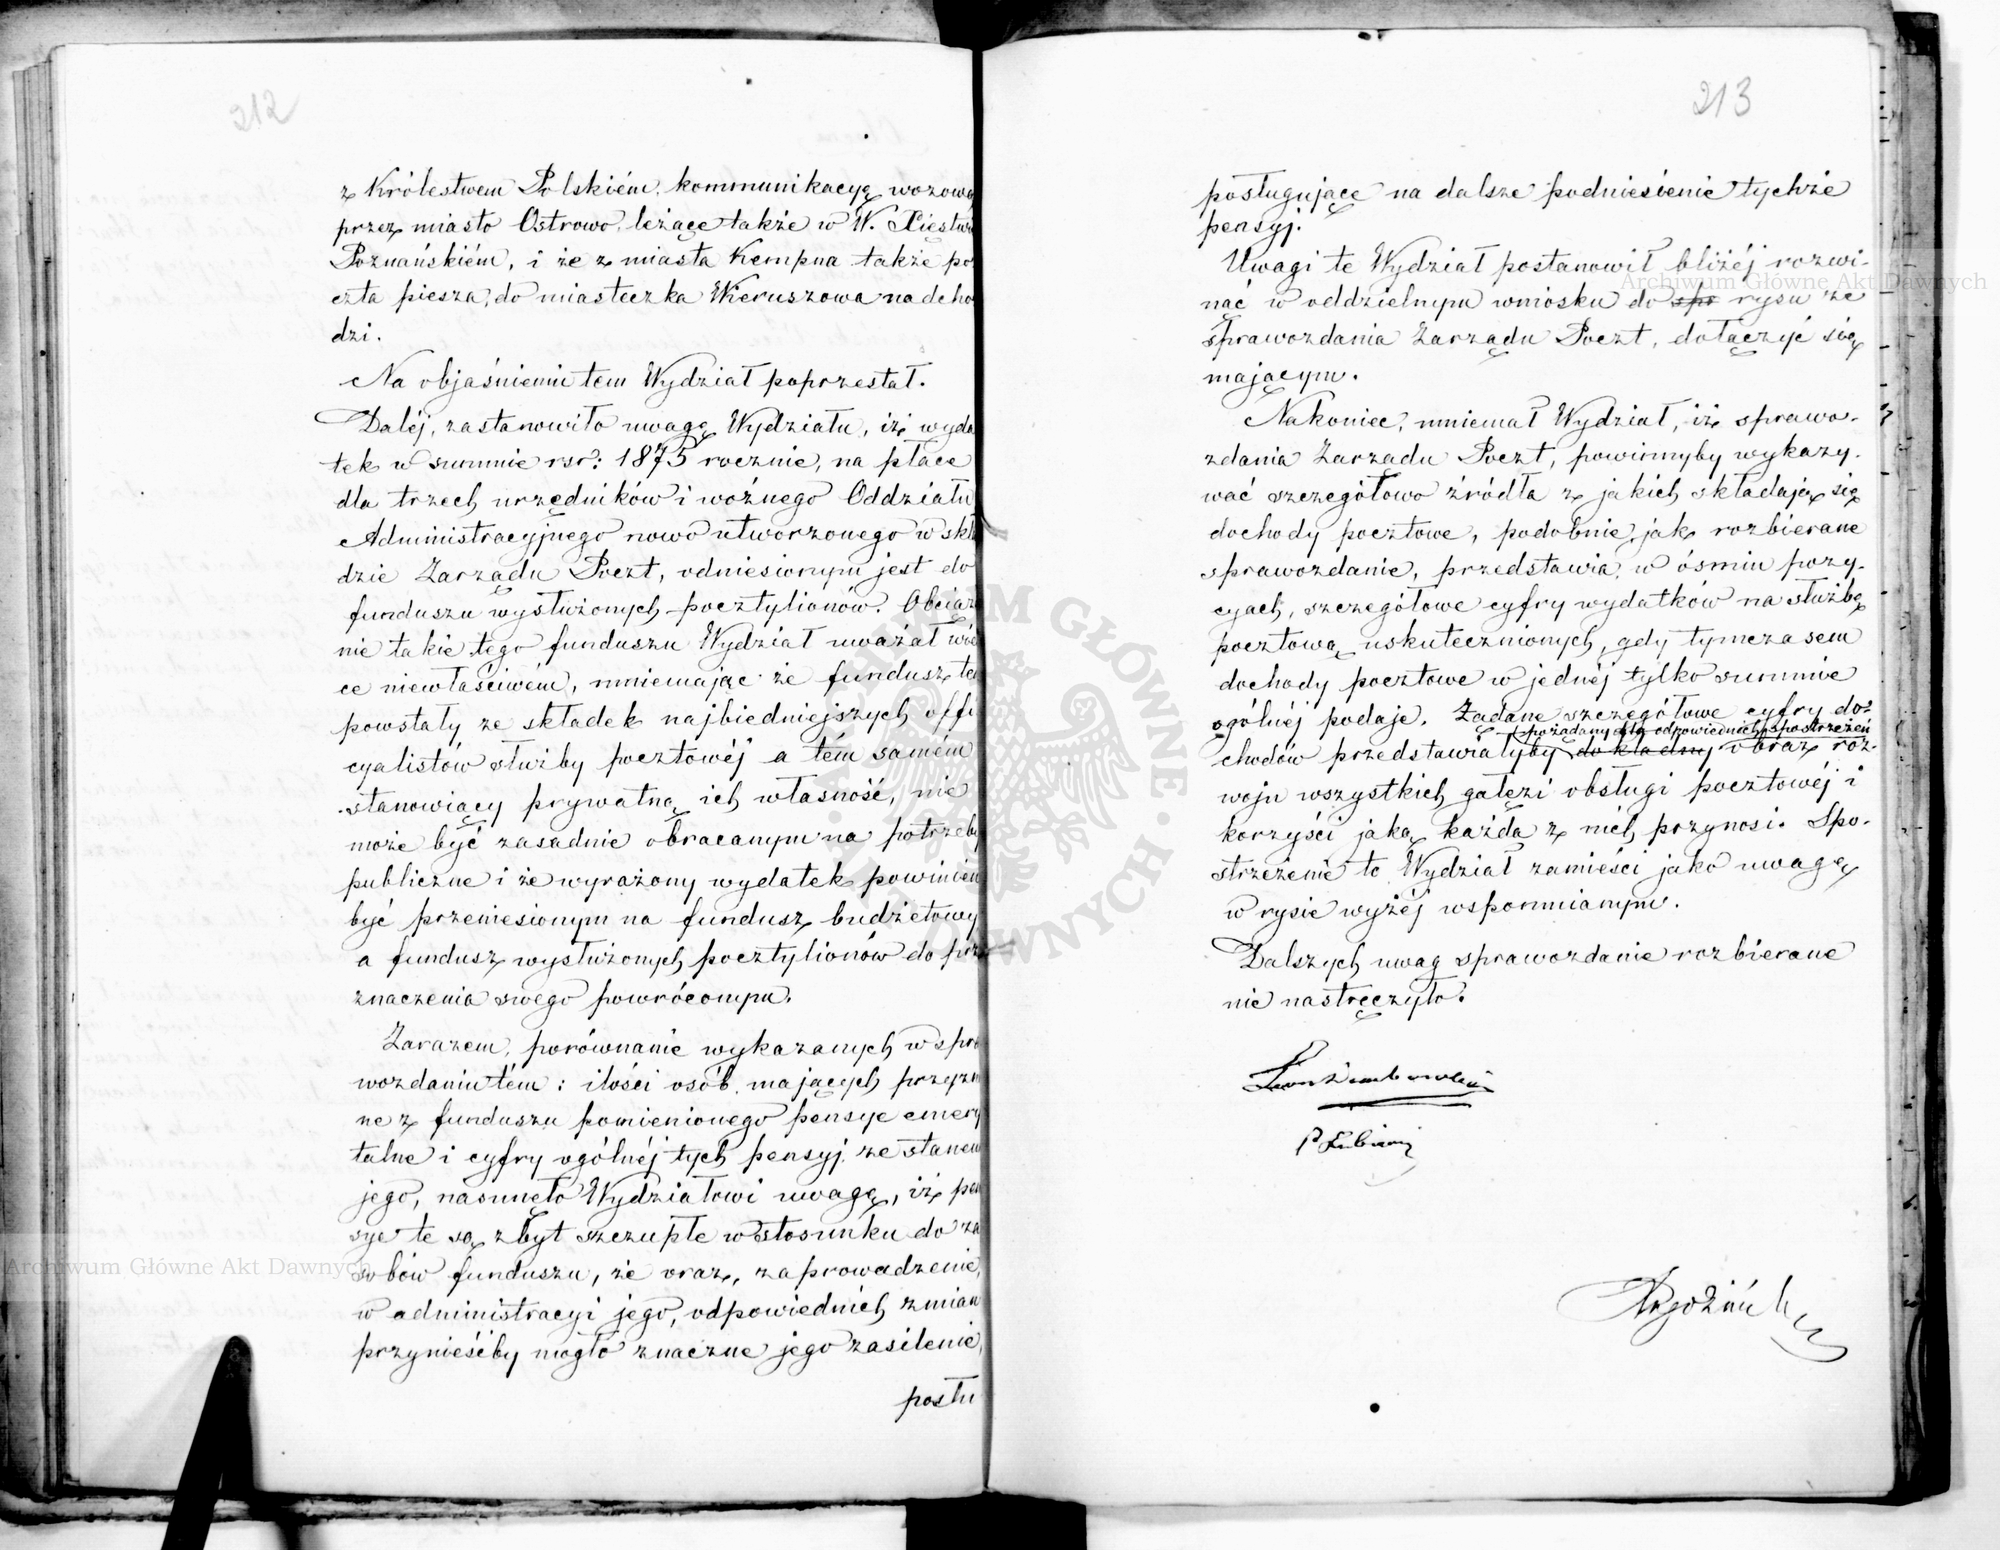 212
z Królestwem Polskiém, kommunikacyą wozową
przez miasto Ostrowo, leżące także w W. Xięstwie
Poznańskiém, i że z miasta Kempna także po
czta piesza, do miasteczka Wieruszowa nadcho
dzi.
Na objaśnieniu tem Wydział poprzestał.
Daléj, zastanowiło uwagę Wydziału, iż wyda
tek w summie rsr: 1875 rocznie, na płace
dla trzech urzędników i woźnego Oddziału
Administracyjnego nowo utworzonego w skła
dzie Zarządu Poczt, odniesionym jest do
funduszu wysłużonych pocztylionów. Obciąże
nie takie tego funduszu Wydział uważał
ce niewłaściwém, mniemając że fundusz ten
powstały ze składek najbiedniejszych offi
cyalistów służby pocztowéj a tém samém
stanowiący prywatną ich własność, nie
może być zasadnie obracanym na potrzeby
publiczne i że wyrażony wydatek powinien
być przeniesionym na fundusz budżetowy
a fundusz wysłużonych pocztylionów do prze
znaczenia swego powróconym.
Zarazem, porównanie wykazanych w spra
wozdaniu tém: ilości osób, mających przyzna
ne z funduszu pomienionego pensye emery
talne i cyfry ogólnéj tych pensyj, ze stanem
jego, nasunęło Wydziałowi uwagę, iż pen
sye te są zbyt szczupłe w stosunku do za
sobów funduszu, że oraz, zaprowadzenie,
w administracyi jego, odpowiednich zmian
przynieśćby mogło znaczne jego zasilenie,
posłu
213
posługujące na dalsze podniesienie tychże
pensyj.
Uwagi te Wydział postanowił bliżéj rozwi-
nąć w oddzielnym wniosku do spr rysu ze
sprawozdania Zarządu Poczt, dołączyć się
mającym.
Nakoniec, mniemał Wydział, iż sprawo-
zdania Zarządu Poczt, powinnyby wykazy-
wać szczegółowo źródła z jakich składają się
dochody pocztowe, podobnie jak rozbierane
sprawozdanie, przedstawia, w óśmiu pozy-
cyach, szczegółowe cyfry wydatków na służbę
pocztową uskutecznionych, gdy tymczasem
dochody pocztowe w jednéj tylko summie
ogólnéj podaje. Żądane szczegółowe cyfry do-
pożądany dla odpowiednich spostrzeżeń
chodów przedstawiałyby dokładny obraz roz-
woju wszystkich gałęzi obsługi pocztowéj i
korzyści jaką każda z nich przynosi. Spo-
strzeżenie to Wydział zamieści jako uwagę
w rysie wyżéj wspomnianym.
Dalszych uwag sprawozdanie rozbierane
nie nastręczyło.
Archiwum Główne Akt Dawnych
Archiwum Główne Akt Dawnych